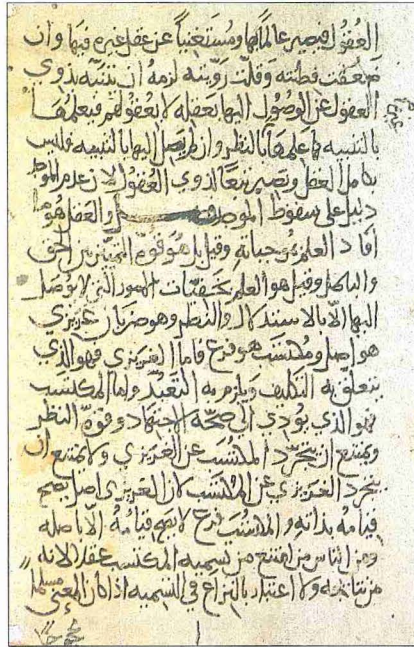 العقول فيصير عالما بها ومستغنيا عن عقل غيره فيها وان
ضعفت فطنته وقلت رويته لزمه ان يتنبه بذوي
العقول عن الوصول اليها بعقله لا بعقولهم فيعلمها
بالتنبيه كما علمها بالنظر وان لم يصل اليها بالتنبيه فليس
بكامل العقل ويصير تبعا لذوي العقول لان عدم الموجب
دليل على سقوط الموجب والعقل هو ما
افاد العلم بموجباته وقيل بل هو قوة التمييز بين الحق
والباطل وقيل هو العلم بخفيات الامور التي لا يوصل
اليها الا بالاستدلال والنظر وهو ضربان غريزي
هو اصل ومكتسب هو فرع فاما الغريزي فهو الذي
يتعلق به التكليف ويلزم به التعبد واما المكتسب
فهو الذي يؤدي الى صحة الاجتهاد وقوة النظر
ويمتنع ان يتجرد المكتسب عن الغريزي ولا يمتنع ان
يتجرد الغريزي عن المكتسب لان الغريزي اصل يصح
قيامه بذاته والمكتسب فرع لا يصح قيامه الا باصله
ومن الناس من امتنع من تسمية المكتسب عقلا لانه
من نتائجه ولا اعتبار بالنزاع في التسمية اذا كان المعنى مسلما